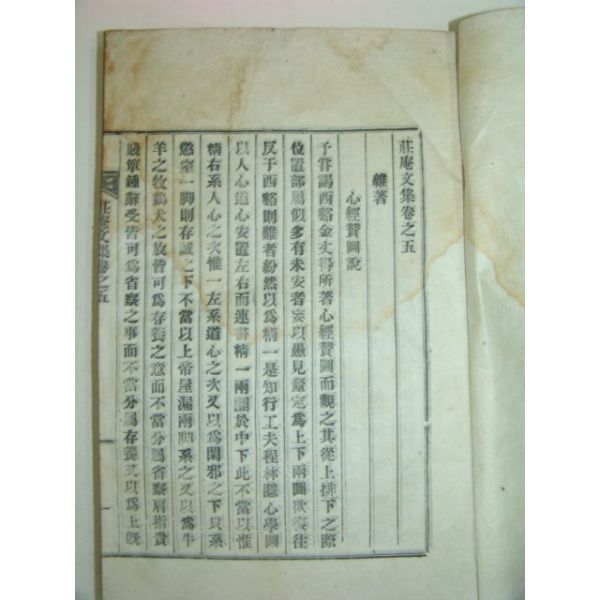 莊庵文集卷之五
雜著
心經贊圖說
予嘗謁西谿金丈得所著心經贊圖而觀之其從上排下之際
位置部屬似多有未安者妄以愚見釐定爲上下兩圖欲養往
反于西谿則難者紛然以爲精一是知行工夫程林隱心學圖
以人心道心安置左右而連書精一兩圈於中下此不當以惟
精右系人心之次惟一左系道心之次又以爲閑邪之下只系
懲窒一脚則存誠之下不當以上帝屋漏兩順系之又以爲牛
羊之牧鷄犬之放皆可爲存養之意而不當分屬省察肩指貴
賤簞鍾辭受皆可爲省察之事而不當分屬存養又以爲上旣
莊庵文集卷之五
一